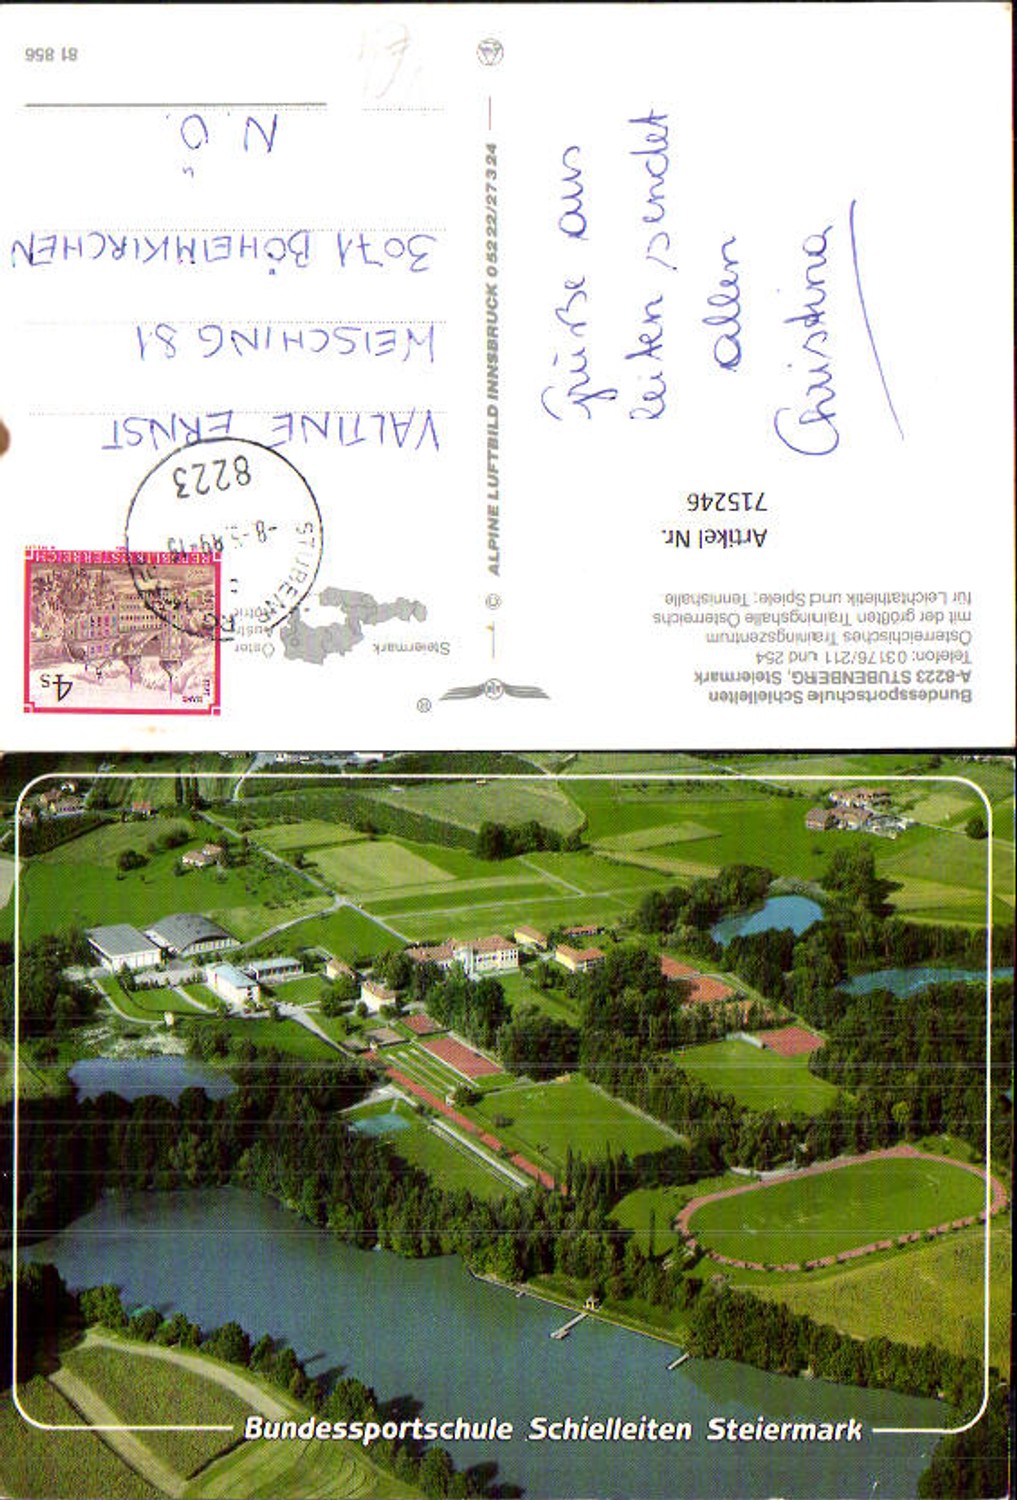 Bundessportschule Schielleiten
A-8223 STUBENBERG, Steiermark
Telefon: 03176/211 und 254
Österreichisches Trainingszentrum
mit der größten Trainingshalle Österreichs
für Leichtathletik und Spiele; Tennishalle.
Artikel Nr.
715246
Grüße aus
leiten sendet
allen
Christina
®
ALPINE LUFTBILD INNSBRUCK 0 52 22/27 3 24
©
Steiermark
4 S
REPUBLIK ÖSTERREICH
8223
STUBENBERG
VALTINE ERNST
WEISCHING 81
3071 BÖHEIMKIRCHEN
N.Ö.
81 856
Bundessportschule Schielleiten Steiermark